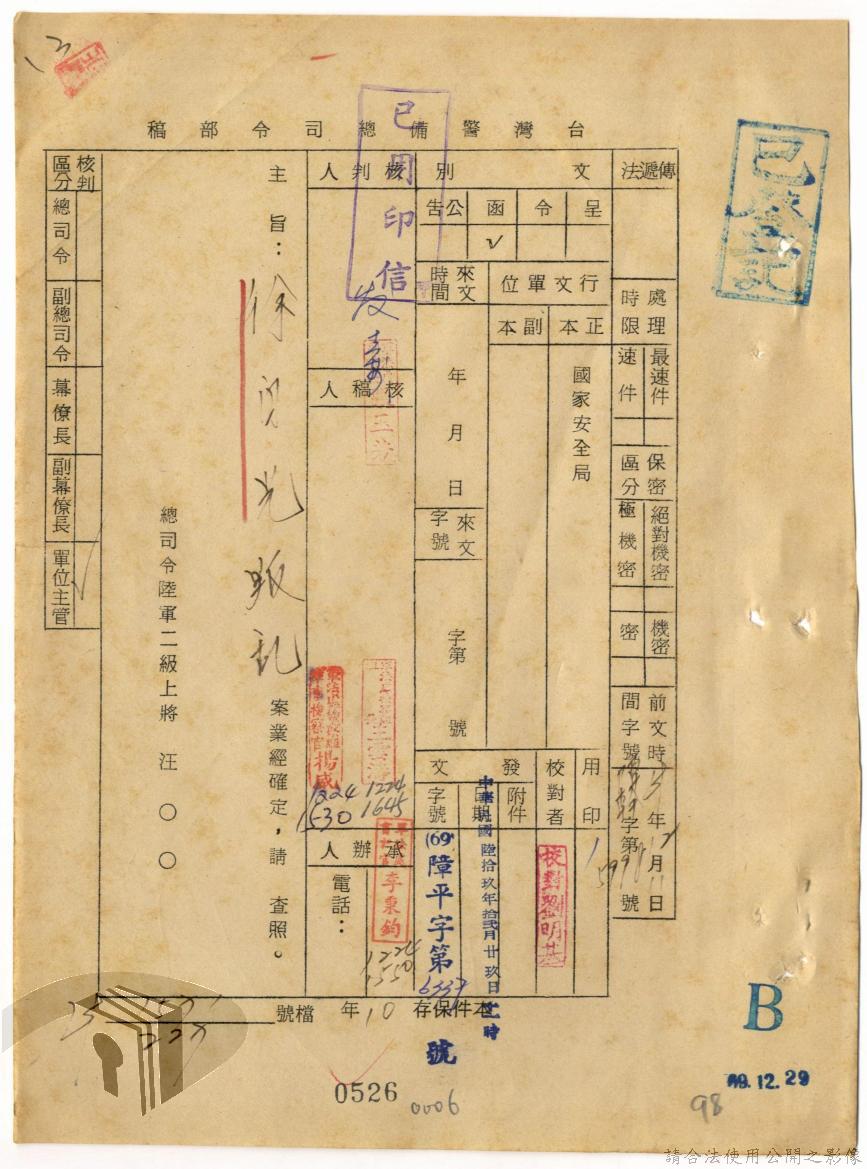 台灣警備總司令部稿
已用印信
已登記
傳遞法
處理時限
最速件
速件
保密區分
絕對機密
極機密
機密
密
前文時間字號
年月日
字第號
文別
呈
令
函
公告
√
行文單位
正本
副本
國家安全局
來文時間
年月日
來文字號
字第號
用印
校對者
校對劉明基
發文
附件
日期
中華民國陸拾玖年拾貳月廿玖日
時
字號
(69)障平字第6337號
核判人
核稿人
楊威
1224
1530
1224
1645
承辦人
李秉鈞
電話：
1224
1550
主旨：徐
光叛乱
案業經確定，請查照。
總司令陸軍二級上將汪○○
核判區分
總司令
副總司令
幕僚長
副幕僚長
單位主管
√
本件保存10年
檔號
0526
0006
B
69.12.29
98
請合法使用公開之影像